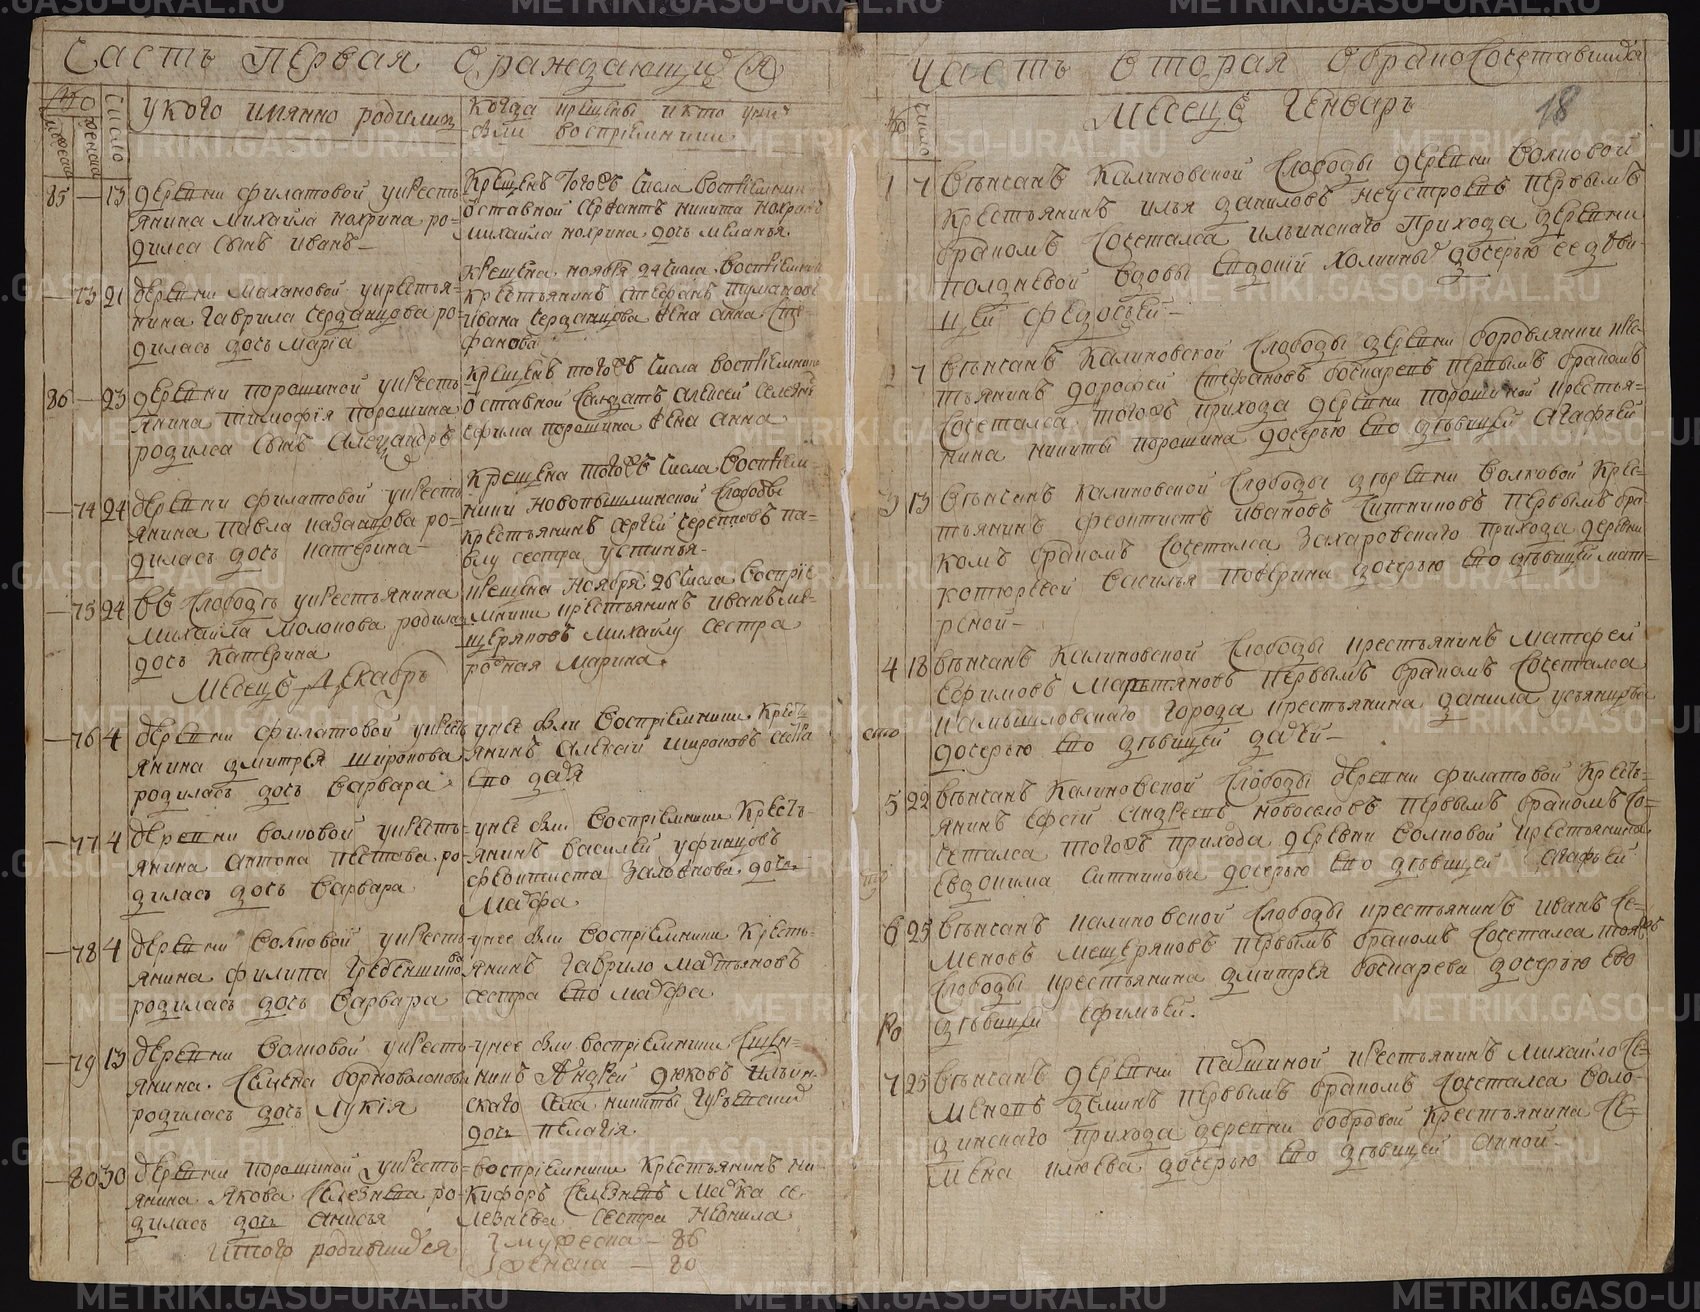 Часть первая о раждающихся
У кого имянно родились
Когда крещены и кто при
были восприемники
85 — 13 деревни Филатовой у крестьянина Михаила Нохрина ро-
дился сынъ Иванъ —
Крещенъ тогожъ числа восприемник
отставной сержантъ Никита Нохринъ
Михаила Нохрина дочь Меланья
— 73 21 деревни Махановой у крестья-
нина Гаврила Серданцова ро-
дилась дочь Мария
Крещена ноября 24 числа восприемник
крестьянинъ Стефанъ Тумановъ
Ивана Серданцова жена Анна Сте-
фанова
86 — 23 деревни Порошиной у кресть
янина Тимофія Порошина
родился сынъ Александръ
Крещенъ тогожъ числа восприемник
отставной салдатъ Алексей
Ефима Порошина жена Анна
— 74 24 деревни Филатовой у кресть
янина Павла Казанцова ро-
дилась дочь Катерина —
Крещена тогожъ числа восприем-
ники Новопышминской слободы
крестьянинъ Сергей Черепновъ па-
влу сестра Устинья —
— 75 24 въ слободъ у крестьянина
Михаила Молокова родила
дочь Катерина
Крещена ноября 26 числа восприе
мники крестьянинъ Иванъ Ме-
щеряковъ Михайлу сестра
родная Марина.
Месецъ Декабрь
— 76 4 деревни Филатовой у кресть
янина Дмитрея Широкова
родилась дочь Варвара
у нее были восприемники кресть
янинъ Алексій Широковъ
ево дядя
— 77 4 деревни Волковой у кресть-
янина Антона Пестова ро-
дилась дочь Варвара
у нее были восприемники кресть-
янинъ Василей Уфинцовъ
Феоктиста дочь
Марфа
— 78 4 деревни Волковой у кресть-
янина Филипа Гребенщикова
родилась дочь Варвара
у нее были восприемники кресть-
янинъ Гаврило Мартьяновъ
сестра ево Марфа
— 79 13 деревни Волковой у кресть-
янина Семена Борноволокова
родилась дочь Лукия
у нее были восприемники священ-
никъ Андрей Дюковъ Ильин-
скаго села Никиты
дочь Пелагія.
— 80 30 деревни Порошиной у кресть-
янина Якова Селезнева ро-
дилась дочь Анисья
восприемники крестьянинъ Ни-
кифоръ Селезневъ Марка Се-
лезнева сестра Неонила
Итого родившихся
мужеска — 86
женска — 80
Часть вторая о бракосочетавшихся
Месецъ Генварь
18
1 7 Венчанъ Калиновской слободы деревни Волковой
крестьянинъ Илья Даниловъ Неустроевъ первымъ
бракомъ сочетался Ильинскаго прихода деревни
Полдневой вдовы дочерью ее деви-
цей Федосьей —
2 7 Венчанъ Калиновской слободы деревни Боровлянки крес-
тьянинъ Дорофей Стефановъ Боспаревъ первымъ бракомъ
сочетался тогожъ прихода деревни Порошиной крестья-
нина Никиты Порошина дочерью ево девицей Агафьей
3 13 Венчанъ Калиновской слободы деревни Волковой крес-
тьянинъ Феоктистъ Ивановъ Ситниковъ первымъ бра-
комъ бракомъ сочетался Захаровскаго прихода деревни
Котюревой Василья Поверина дочерью ево девицей Мат-
реной —
4 18 Венчанъ Калиновской слободы крестьянинъ Матфей
Ефимовъ Мартьяновъ первымъ бракомъ сочетался
Камышловскаго города крестьянина Данила Усьянцова
дочерью ево девицей
5 22 Венчанъ Калиновской слободы деревни Филатовой кресть-
янинъ Ефсей Андреевъ Новоселовъ первымъ бракомъ со-
четался тогожъ прихода деревни Волковой крестьянина
Евдокима Ситникова дочерью ево девицей Агафьей
6 25 Венчанъ Калиновской слободы крестьянинъ Иванъ Се-
меновъ Мещеряковъ первымъ бракомъ сочетался тояжъ
слободы крестьянина Дмитрея Боспарева дочерью ево
девицей Ефимьей.
7 25 Венчанъ деревни Паршиной крестьянинъ Михайло Се-
меновъ Зелинъ первымъ бракомъ сочетался Воло-
динскаго прихода деревни Бобровой крестьянина Се-
мена Клюева дочерью ево девицей Анной —